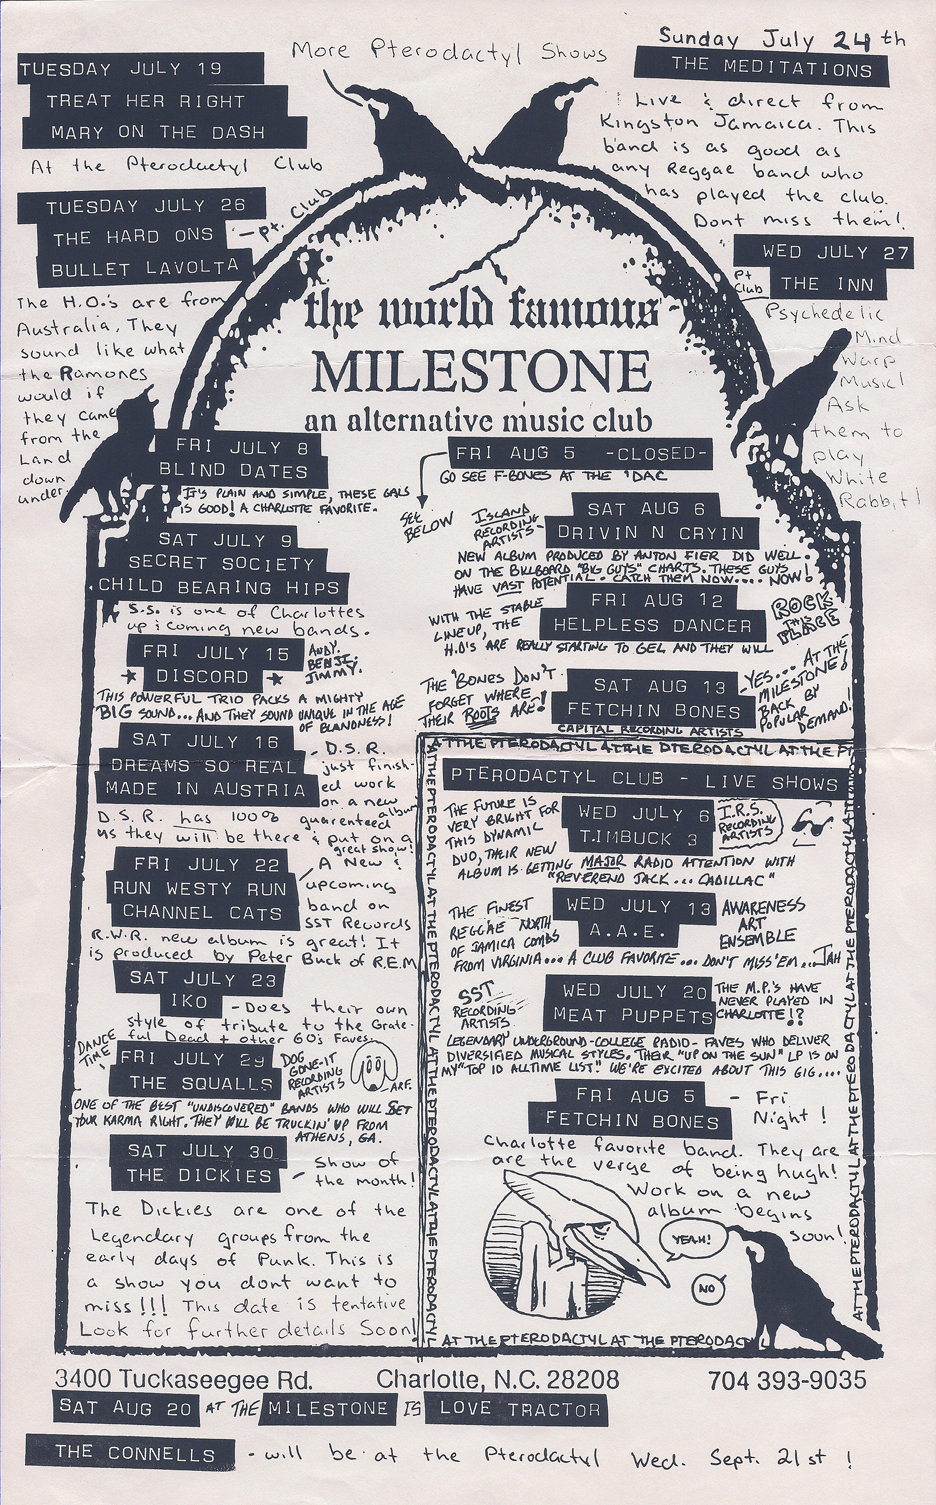 More Pterodactyl Shows
TUESDAY JULY 19
TREAT HER RIGHT
MARY ON THE DASH
At the Pterodactyl Club
TUESDAY JULY 26
THE HARD ONS
BULLET LAVOLTA
- pt. Club
The H.O.'s are from
Australia. They
sound like what
the Ramones
would if
they came
from the
Land
down
under.
Sunday July 24th
THE MEDITATIONS
Live & direct from
Kingston Jamaica. This
band is as good as
any Reggae band who
has played the club.
Dont miss them!
WED JULY 27
THE INN
Pt
Club
Psychedelic
Mind
Warp
Music!
Ask
them to
play
White
Rabbit!
the world famous
MILESTONE
an alternative music club
FRI JULY 8
BLIND DATES
IT'S PLAIN AND SIMPLE, THESE GALS
IS GOOD! A CHARLOTTE FAVORITE.
SAT JULY 9
SECRET SOCIETY
CHILD BEARING HIPS
S.S. is one of Charlottes
up & coming new bands.
FRI JULY 15
DISCORD
ANDY.
BENJI.
JIMMY.
THIS POWERFUL TRIO PACKS A MIGHTY
BIG SOUND... AND THEY SOUND UNIQUE IN THE AGE
OF BLANDNESS!
SAT JULY 16
DREAMS SO REAL
MADE IN AUSTRIA
- D.S.R.
just finish-
ed work
on a new
album
D.S.R. has 100% guarenteed
us they will be there & put on a
great show!
FRI JULY 22
RUN WESTY RUN
CHANNEL CATS
A New &
upcoming
band on
SST Records
R.W.R. new album is great! It
is produced by Peter Buck of R.E.M
SAT JULY 23
IKO
- Does their own
style of tribute to the Grate-
ful Dead + other 60's Faves.
DANCE
TIME
FRI JULY 29
THE SQUALLS
DOG
GONE-IT
RECORDING
ARTISTS
ARF.
ONE OF THE BEST "UNDISCOVERED" BANDS WHO WILL SET
YOUR KARMA RIGHT. THEY WILL BE TRUCKIN' UP FROM
ATHENS, GA.
SAT JULY 30
THE DICKIES
- Show of
the month!
The Dickies are one of the
Legendary groups from the
early days of Punk. This is
a show you dont want to
miss!!! This date is tentative
Look for further details Soon!
FRI AUG 5 -CLOSED-
GO SEE F-BONES AT THE 'DAC
SEE
BELOW
ISLAND
RECORDING
ARTISTS-
SAT AUG 6
DRIVIN N CRYIN
NEW ALBUM PRODUCED BY ANTON FIER DID WELL
ON THE BILLBOARD "BIG GUYS" CHARTS. THESE GUYS
HAVE VAST POTENTIAL. CATCH THEM NOW.... NOW!
FRI AUG 12
HELPLESS DANCER
WITH THE STABLE
LINEUP, THE
H.D'S ARE REALLY STARTING TO GEL AND THEY WILL
ROCK
THE
PLACE
SAT AUG 13
FETCHIN BONES
THE 'BONES DON'T
FORGET WHERE
THEIR ROOTS ARE!
CAPITAL RECORDING ARTISTS
-YES... AT THE
MILESTONE!
BACK
BY
POPULAR
DEMAND!
AT THE PTERODACTYL AT THE PTERODACTYL AT THE PT
PTERODACTYL CLUB - LIVE SHOWS
THE FUTURE IS
VERY BRIGHT FOR
THIS DYNAMIC
DUO, THEIR NEW
ALBUM IS GETTING MAJOR RADIO ATTENTION WITH
"REVEREND JACK... CADILLAC"
WED JULY 6
TIMBUCK 3
I.R.S.
RECORDING
ARTISTS
WED JULY 13
A.A.E.
AWARENESS
ART
ENSEMBLE
THE FINEST
REGGAE NORTH
OF JAMICA COMBS
FROM VIRGINIA... A CLUB FAVORITE... DON'T MISS 'EM... JAH
SST
RECORDING
ARTISTS
WED JULY 20
MEAT PUPPETS
THE M.P.'S HAVE
NEVER PLAYED IN
CHARLOTTE!?
LEGENDARY UNDERGROUND-COLLEGE RADIO- FAVES WHO DELIVER
DIVERSIFIED MUSICAL STYLES. THEIR "UP ON THE SUN" LP IS ON
MY "TOP 10 ALLTIME LIST." WE'RE EXCITED ABOUT THIS GIG....
FRI AUG 5
FETCHIN BONES
- Fri
Night!
Charlotte favorite band. They are
are the verge of being hugh!
Work on a new
album begins
soon!
YEAH!
NO
AT THE PTERODACTYL AT THE PTERODACTYL
3400 Tuckaseegee Rd. Charlotte, N.C. 28208 704 393-9035
SAT AUG 20 AT THE MILESTONE IS LOVE TRACTOR
THE CONNELLS - will be at the Pterodactyl Wed. Sept. 21st !